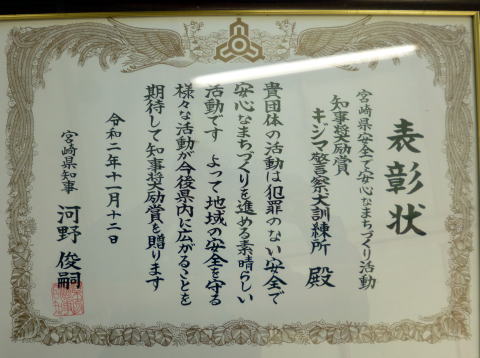 表彰状
宮崎県安全で安心なまちづくり活動
知事奨励賞
キジマ警察犬訓練所 殿
貴団体の活動は犯罪のない安全で
安心なまちづくりを進める素晴らしい
活動です よって地域の安全を守る
様々な活動が今後県内に広がることを
期待して知事奨励賞を贈ります
令和二年十一月十二日
宮崎県知事 河野俊嗣